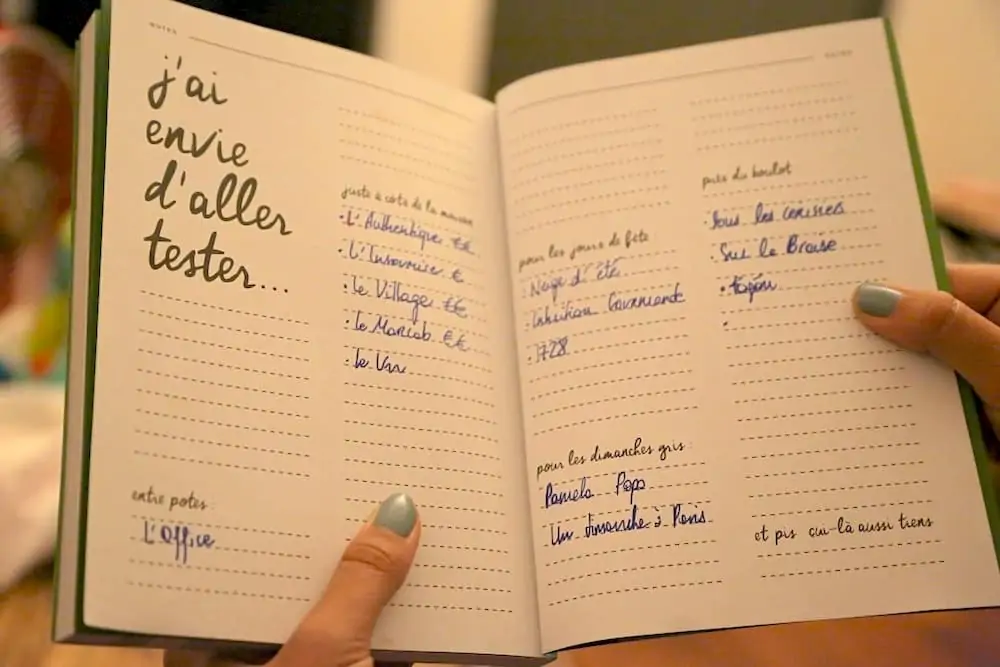 NOTES
j'ai
envie
d'aller
tester...
entre potes :
L'Office
juste à côté de la maison
• L'Authentique €€
• L' €
• Le Village €€
• Le €€
• Le
NOTES
pour les jours de fête
Nage d'été
• Intuition Gourmande
• 1728
pour les dimanches gris :
Pamela Popo
Un dimanche à Paris
près du boulot
Tous les cerises
• Sur la Braise
•
•
et pis cui-là aussi tiens